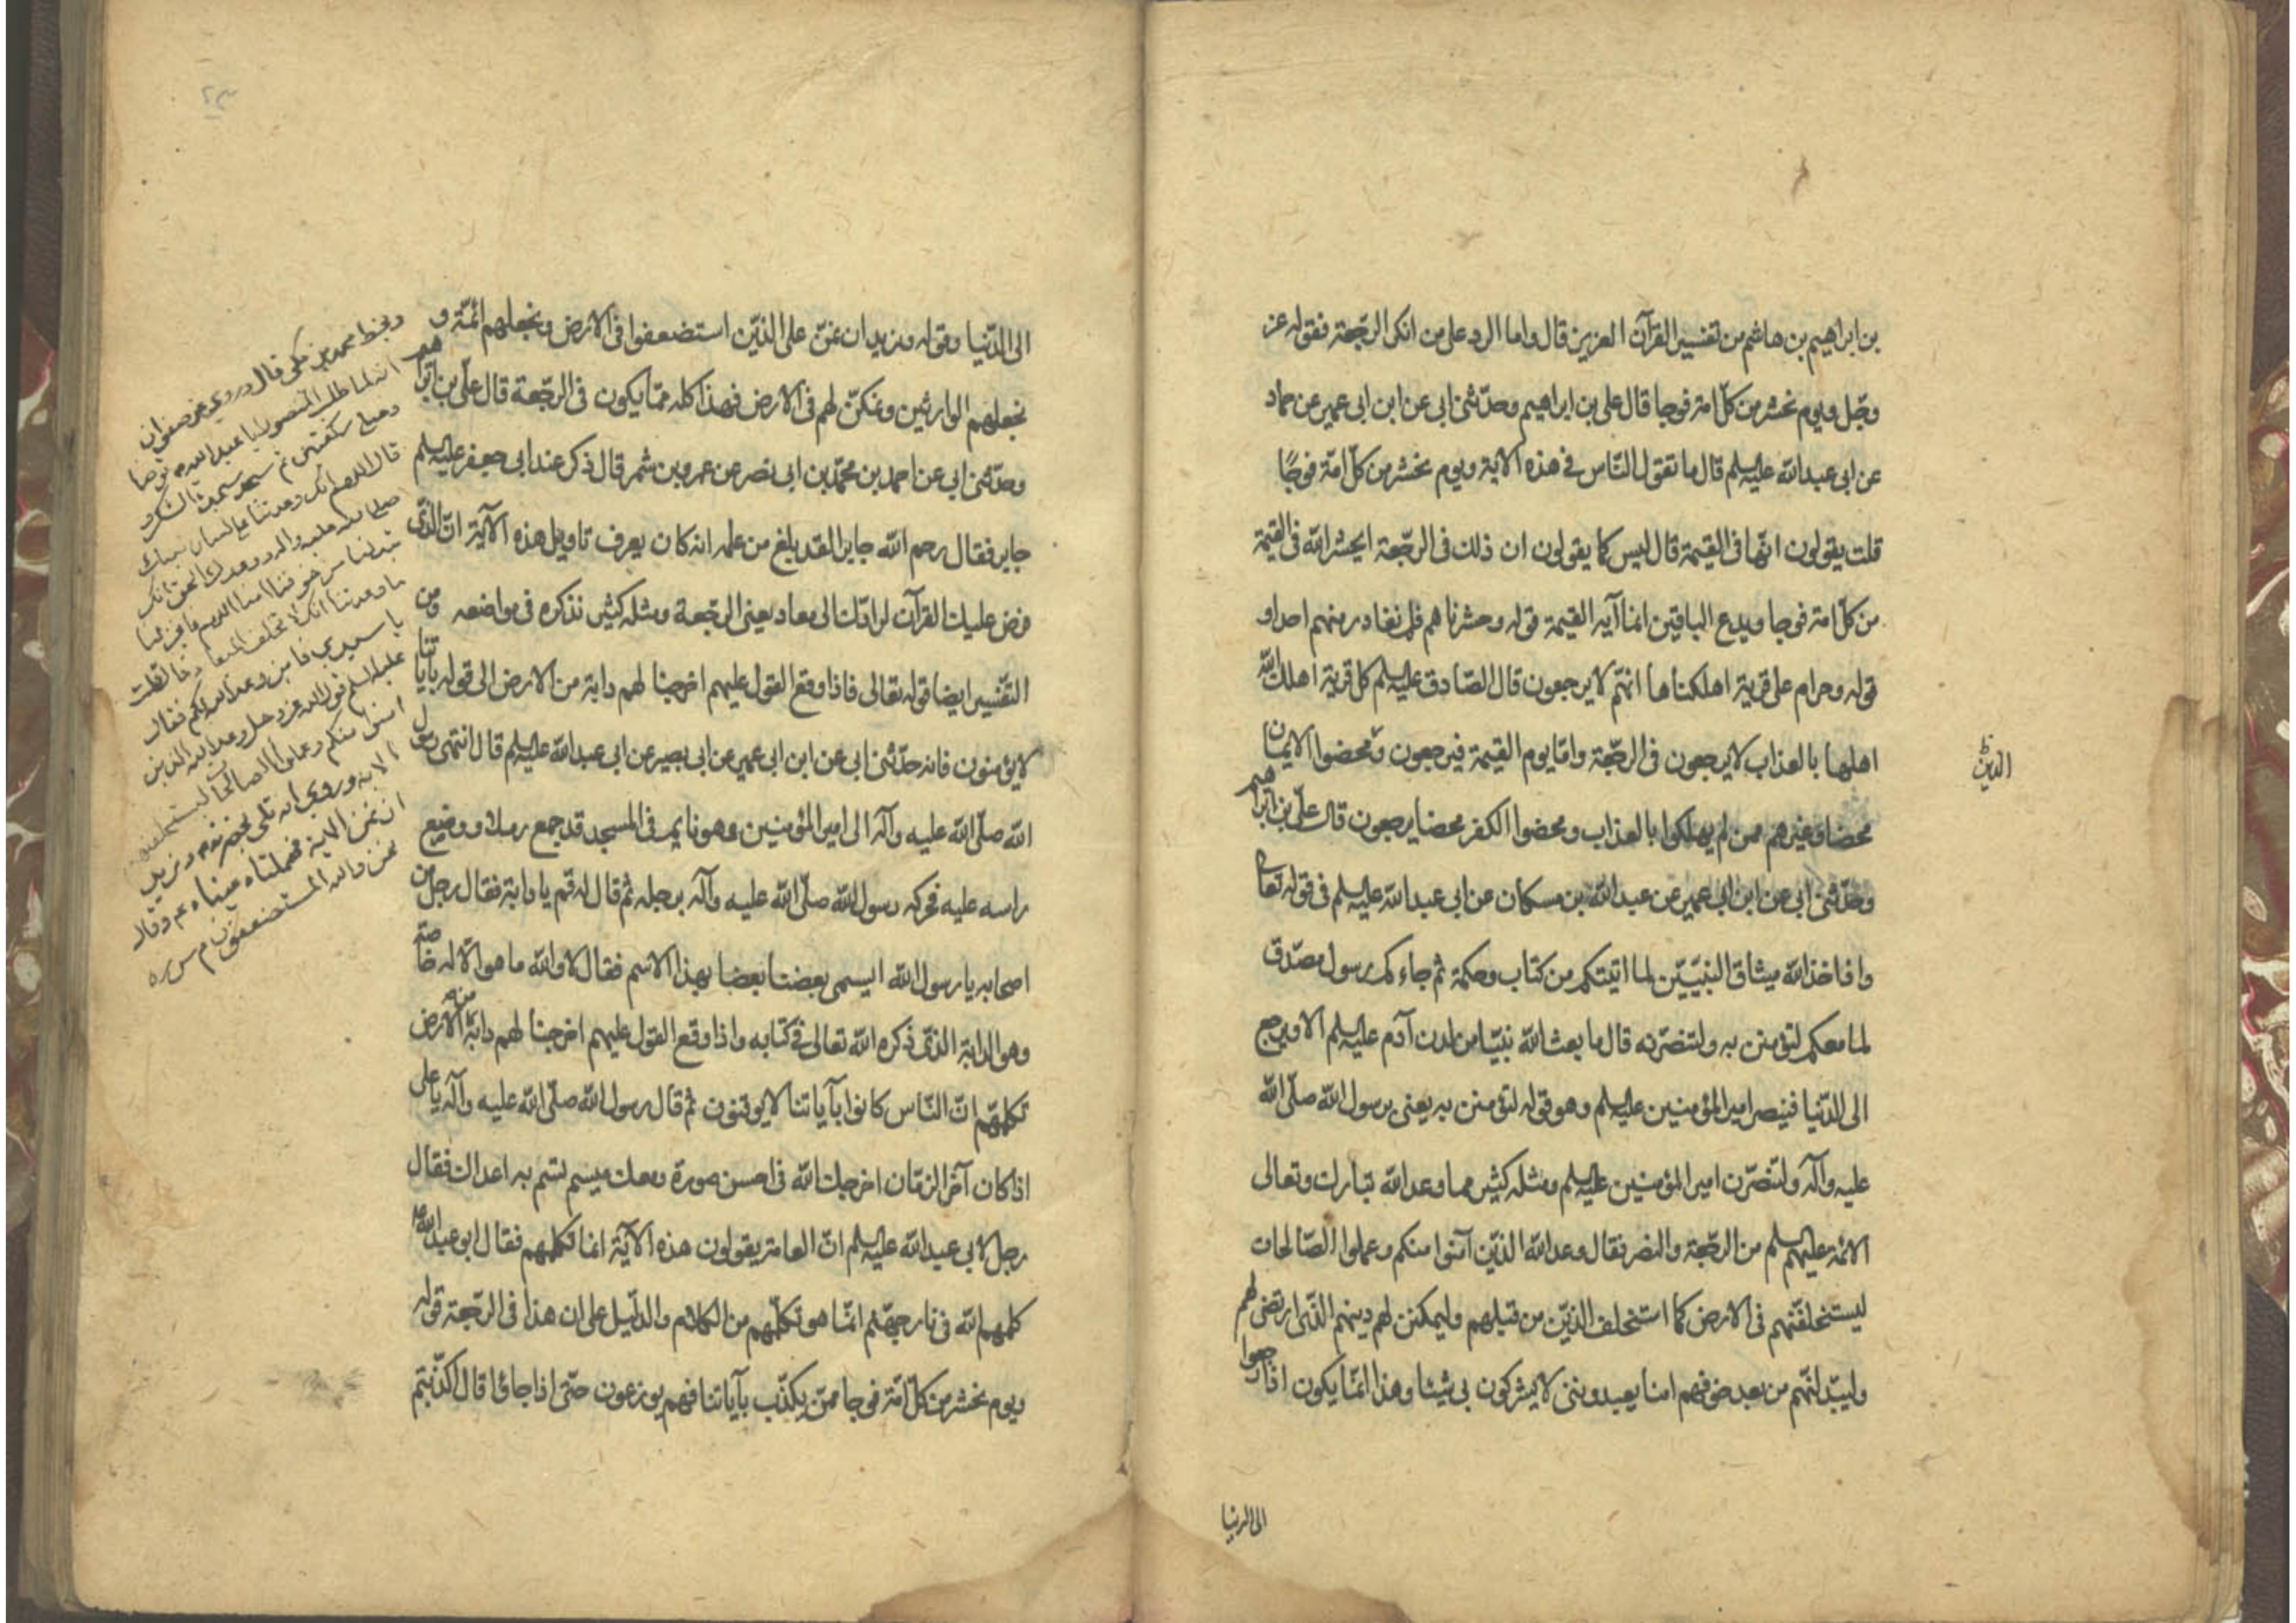 بن ابراهيم بن هاشم من تفسير القرآن العزيز قال واما الرد على من انكر الرجعة فقوله عز
وجل ويوم نحشر من كل امة فوجا قال على بن ابراهيم وحدّثنى ابى عن ابن ابى عمير عن حماد
عن ابى عبدالله عليه السلم قال ما تقول النّاس فى هذه الاية ويوم نحشر من كلّ امّة فوجًا
قلت يقولون انّها فى القيمة قال ليس كما يقولون ان ذلك فى الرّجعة ايحشر الله فى القيمة
من كلّ امة فوجا ويدع الباقين انما آية القيمة قوله وحشرناهم فلم نغادر منهم احدا و
قوله وحرام على قرية اهلكناها انهّم لا يرجعون قال الصّادق عليه السلم كل قرية اهلك الله
اهلها بالعذاب لا يرجعون فى الرجّعة وامّا يوم القيمة فيرجعون ومحضوا الايمان
الذين
محضا وغيرهم ممن لم يهلكوا بالعذاب ومحضوا الكفر محضا يرجعون قال علىّ بن ابراهيم
وحدّثنى ابى عن ابن ابى عمير عن عبدالله بن مسكان عن ابى عبدالله عليه السلم فى قوله تعالى
واذ اخذ الله ميثاق النبيّين لما اتيتكم من كتاب وحكمة ثم جاءكم رسول مصدّق
لما معكم لتؤمنن به ولتنصّرنه قال ما بعث الله نبيّا من لدن آدم عليه السلم الا ويرجع
الى الدّنيا فينصر امير المؤمنين عليه السلم وهو قوله لتؤمنن به يعنى برسول الله صلّى الله
عليه وآله ولتنصّرن امير المؤمنين عليه السلم ومثله كثير مما وعد الله تبارك وتعالى
الائمة عليهم السلم من الرجّعة والنصر فقال وعد الله الذيّن آمنوا منكم وعملوا الصّالحات
ليستخلفنّهم فى الارض كما استخلف الذيّن من قبلهم وليمكنن لهم دينهم الذّى ارتضى لهم
وليبدّلنّهم من بعد خوفهم امنا يعبدوننى لا يشركون بى شيئا وهذا انمّا يكون اذا رجعوا
الى الدنيا
٢٣
الى الدّنيا وقوله ونريد ان نمنّ على الذيّن استضعفوا فى الارض ونجعلهم ائمّة و
نجعلهم الوارثين ونمكنّ لهم فى الارض فهذا كله ممّا يكون فى الرجّعة قال علىّ بن ابراهيم
وحدّثنى ابى عن احمد بن محمّد بن ابى نصر عن عمرو بن شمر قال ذكر عند ابى جعفر عليه السلم
جابر فقال رحم الله جابرا لقد بلغ من علمه انه كان يعرف تاويل هذه الآية انّ الذّى
فرض عليك القرآن لرادّك الى معاد يعنى الرجّعة ومثله كثير نذكره فى مواضعه ومن
التفّسير ايضا قوله تعالى فاذا وقع القول عليهم اخرجنا لهم دابة من الارض الى قوله باياتنا
لا يؤمنون فانه حدّثنى ابى عن ابن ابى عمير عن ابى بصير عن ابى عبدالله عليه السلم قال انتهى رسول
الله صلّى الله عليه وآله الى امير المؤمنين وهو نايم فى المسجد قد جمع رملا ووضع
راسه عليه فحركه رسول الله صلّى الله عليه وآله برجله ثم قال له قم يا دابة فقال رجل من
اصحابه يا رسول الله ايسمى بعضنا بعضا بهذا الاسم فقال لا والله ما هو الّا له خاصة
وهو الدابّة الذّى ذكره الله تعالى فى كتابه واذا وقع القول عليهم اخرجنا لهم دابّة من الارض
تكلمّهم انّ النّاس كانوا بآياتنا لا يوقنون ثم قال رسول الله صلّى الله عليه وآله يا على
اذا كان آخر الزمّان اخرجك الله فى احسن صورة ومعك ميسم تسم به اعداك فقال
رجل لابى عبدالله عليه السلم انّ العامة يقولون هذه الآية انما تكلمهم فقال ابو عبدالله
كلمهم الله فى نار جهنّم انمّا هو تكلّمهم من الكلام والدلّيل على ان هذا فى الرجّعة قوله
ويوم نحشر من كلّ امّة فوجا ممنّ يكذّب بآياتنا فهم يوزعون حتّى اذا جاؤا قال اكذّبتم
وبخط محمد بن مكى قال وروى عن صفوان
انه لما طلب المنصور ابا عبدالله توضأ
وصلى ركعتين ثم سجد سجدة الشكر و
قال اللهم انك وعدتنا على لسان نبيك
صلى الله عليه واله ووعدك الحق انك
تبدلنا من خوفنا امنا اللهم فانجز لنا
ما وعدتنا انك لا تخلف الميعاد قال قلت
يا سيدى فاين وعد الله لكم فقال
عليه السلم قول الله عز وجل وعد الله الذين
امنوا منكم وعملوا الصالحات ليستخلفنهم
الاية وروى انه تلى بحضرته ونريد
ان نمن الاية فهملتا عيناه وقال
نحن والله المستضعفون